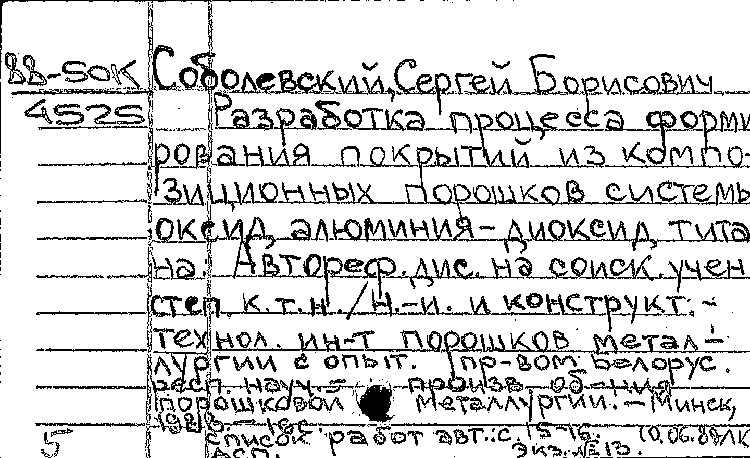 88-5OK Соболевский, Сергей Борисович
4525 Разработка процесса форми
рования покрытий из компо-
зиционных порошков системы
оксид алюминия-диоксид тита
на. Автореф. дис. на соиск. учен
степ. к.т.н. /Н.-и. и конструкт.-
технол. ин-т порошков метал-
лургии с опыт. пр-вом. Белорус.
респ. науч.- произв. об-ния
порошковой металлургии. - Минск,
198 . - 16с.
5 список работ авт.: с. 15-16. 10.06.88
Экз. №13.